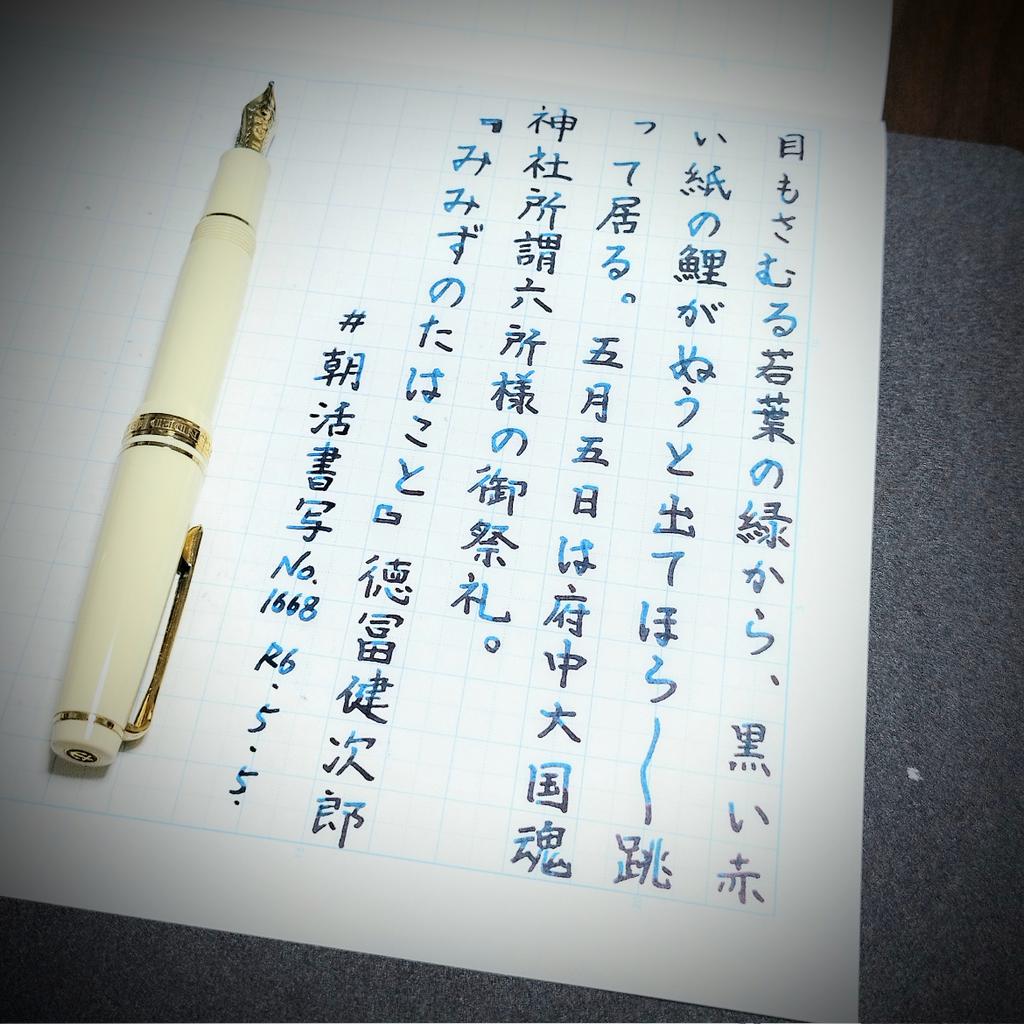 目もさむる若葉の緑から、黒い赤
い紙の鯉がぬうと出てほら〳〵跳
って居る。五月五日は府中大国魂
神社所謂六所様の御祭礼。
『みみずのたはこと』徳冨健次郎
#朝活書写No.1668 R6.5.5.